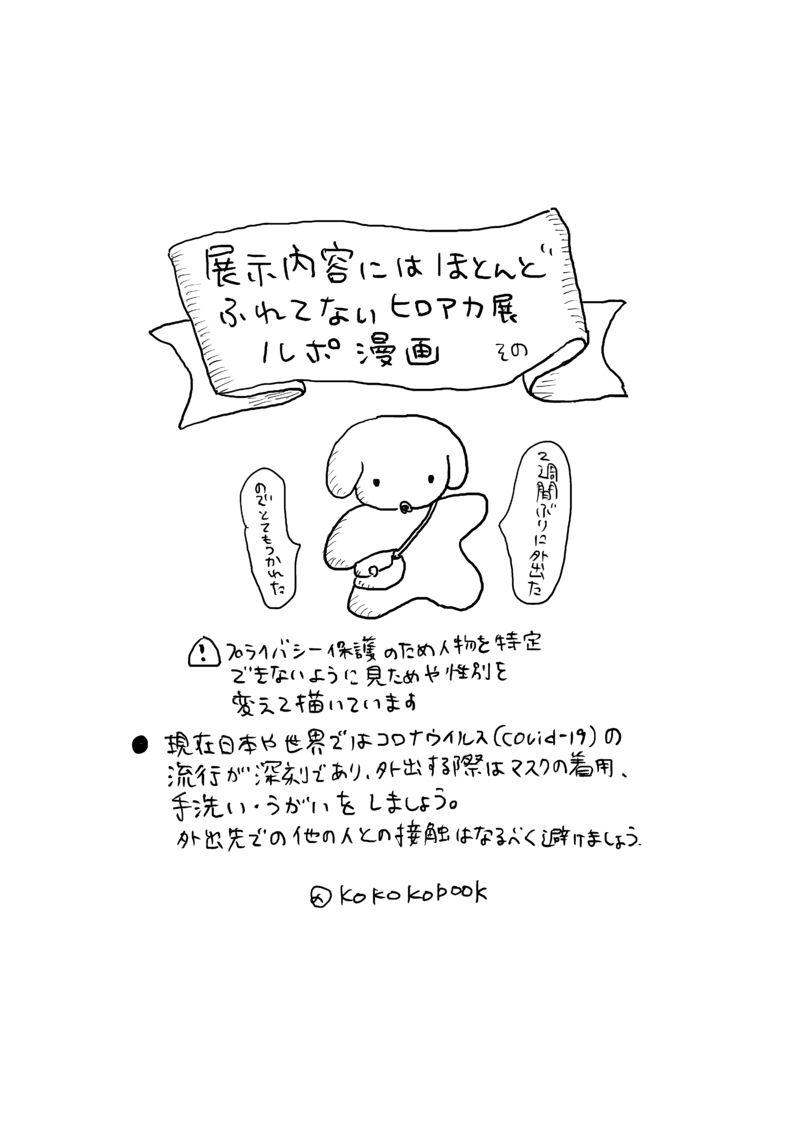 展示内容にはほとんど
ふれてないヒロアカ展
ルポ漫画 その
2週間ぶりに外出た
のでとてもつかれた
プライバシー保護のため人物を特定
できないように見ためや性別を
変えて描いています
● 現在日本や世界ではコロナウイルス(covid-19)の
流行が深刻であり、外出する際はマスクの着用、
手洗い・うがいをしましょう。
外出先での他の人との接触はなるべく避けましょう.
kokokobook